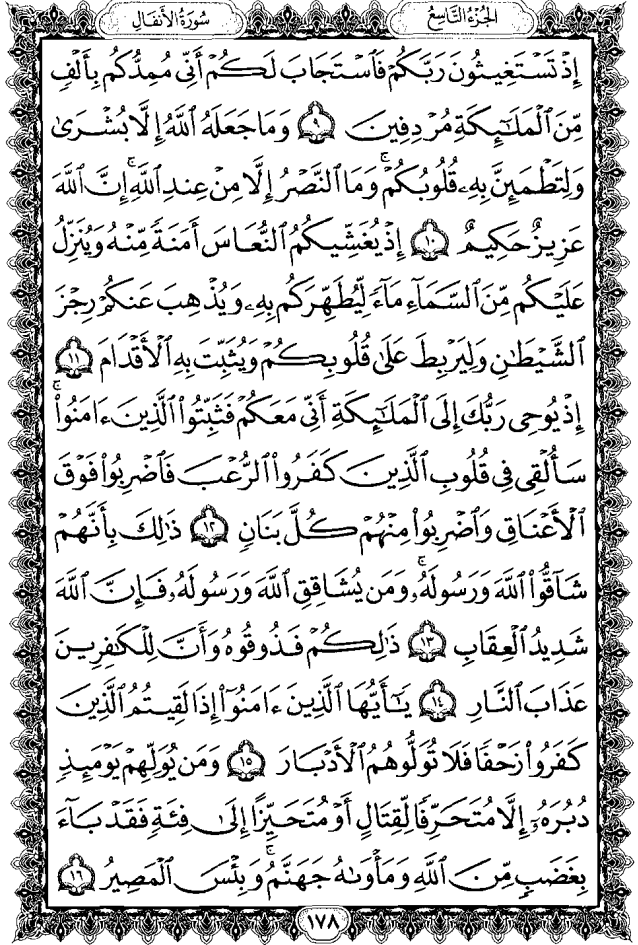 الجُزْءُ التَّاسِعُ
سُورَةُ الأَنفَالِ
إِذْ تَسْتَغِيثُونَ رَبَّكُمْ فَٱسْتَجَابَ لَكُمْ أَنِّي مُمِدُّكُم بِأَلْفٍ
مِّنَ ٱلْمَلَٰٓئِكَةِ مُرْدِفِينَ ٩ وَمَا جَعَلَهُ ٱللَّهُ إِلَّا بُشْرَىٰ
وَلِتَطْمَئِنَّ بِهِۦ قُلُوبُكُمْ ۚ وَمَا ٱلنَّصْرُ إِلَّا مِنْ عِندِ ٱللَّهِ ۚ إِنَّ ٱللَّهَ
عَزِيزٌ حَكِيمٌ ١٠ إِذْ يُغَشِّيكُمُ ٱلنُّعَاسَ أَمَنَةً مِّنْهُ وَيُنَزِّلُ
عَلَيْكُم مِّنَ ٱلسَّمَآءِ مَآءً لِّيُطَهِّرَكُم بِهِۦ وَيُذْهِبَ عَنكُمْ رِجْزَ
ٱلشَّيْطَٰنِ وَلِيَرْبِطَ عَلَىٰ قُلُوبِكُمْ وَيُثَبِّتَ بِهِ ٱلْأَقْدَامَ ١١
إِذْ يُوحِي رَبُّكَ إِلَى ٱلْمَلَٰٓئِكَةِ أَنِّي مَعَكُمْ فَثَبِّتُوا۟ ٱلَّذِينَ ءَامَنُوا۟ ۚ
سَأُلْقِي فِي قُلُوبِ ٱلَّذِينَ كَفَرُوا۟ ٱلرُّعْبَ فَٱضْرِبُوا۟ فَوْقَ
ٱلْأَعْنَاقِ وَٱضْرِبُوا۟ مِنْهُمْ كُلَّ بَنَانٍ ١٢ ذَٰلِكَ بِأَنَّهُمْ
شَآقُّوا۟ ٱللَّهَ وَرَسُولَهُۥ ۚ وَمَن يُشَاقِقِ ٱللَّهَ وَرَسُولَهُۥ فَإِنَّ ٱللَّهَ
شَدِيدُ ٱلْعِقَابِ ١٣ ذَٰلِكُمْ فَذُوقُوهُ وَأَنَّ لِلْكَٰفِرِينَ
عَذَابَ ٱلنَّارِ ١٤ يَٰٓأَيُّهَا ٱلَّذِينَ ءَامَنُوٓا۟ إِذَا لَقِيتُمُ ٱلَّذِينَ
كَفَرُوا۟ زَحْفًا فَلَا تُوَلُّوهُمُ ٱلْأَدْبَارَ ١٥ وَمَن يُوَلِّهِمْ يَوْمَئِذٍ
دُبُرَهُۥٓ إِلَّا مُتَحَرِّفًا لِّقِتَالٍ أَوْ مُتَحَيِّزًا إِلَىٰ فِئَةٍ فَقَدْ بَآءَ
بِغَضَبٍ مِّنَ ٱللَّهِ وَمَأْوَىٰهُ جَهَنَّمُ ۖ وَبِئْسَ ٱلْمَصِيرُ ١٦
١٧٨